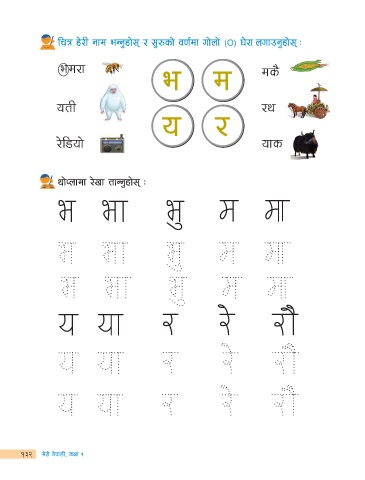 चित्र हेरी नाम भन्नुहोस् र सुरुको वर्णमा गोलो (O) घेरा लगाउनुहोस् :
भमरा
भ म
मकै
यती
रथ
य र
रेडियो
याक
थोप्लामा रेखा तान्नुहोस् :
भ भा भु म मा
भ भा भु म मा
भ भा भु म मा
य या र रे रौ
य या र रे रौ
य या र रे रौ
१३२ मेरो नेपाली, कक्षा १